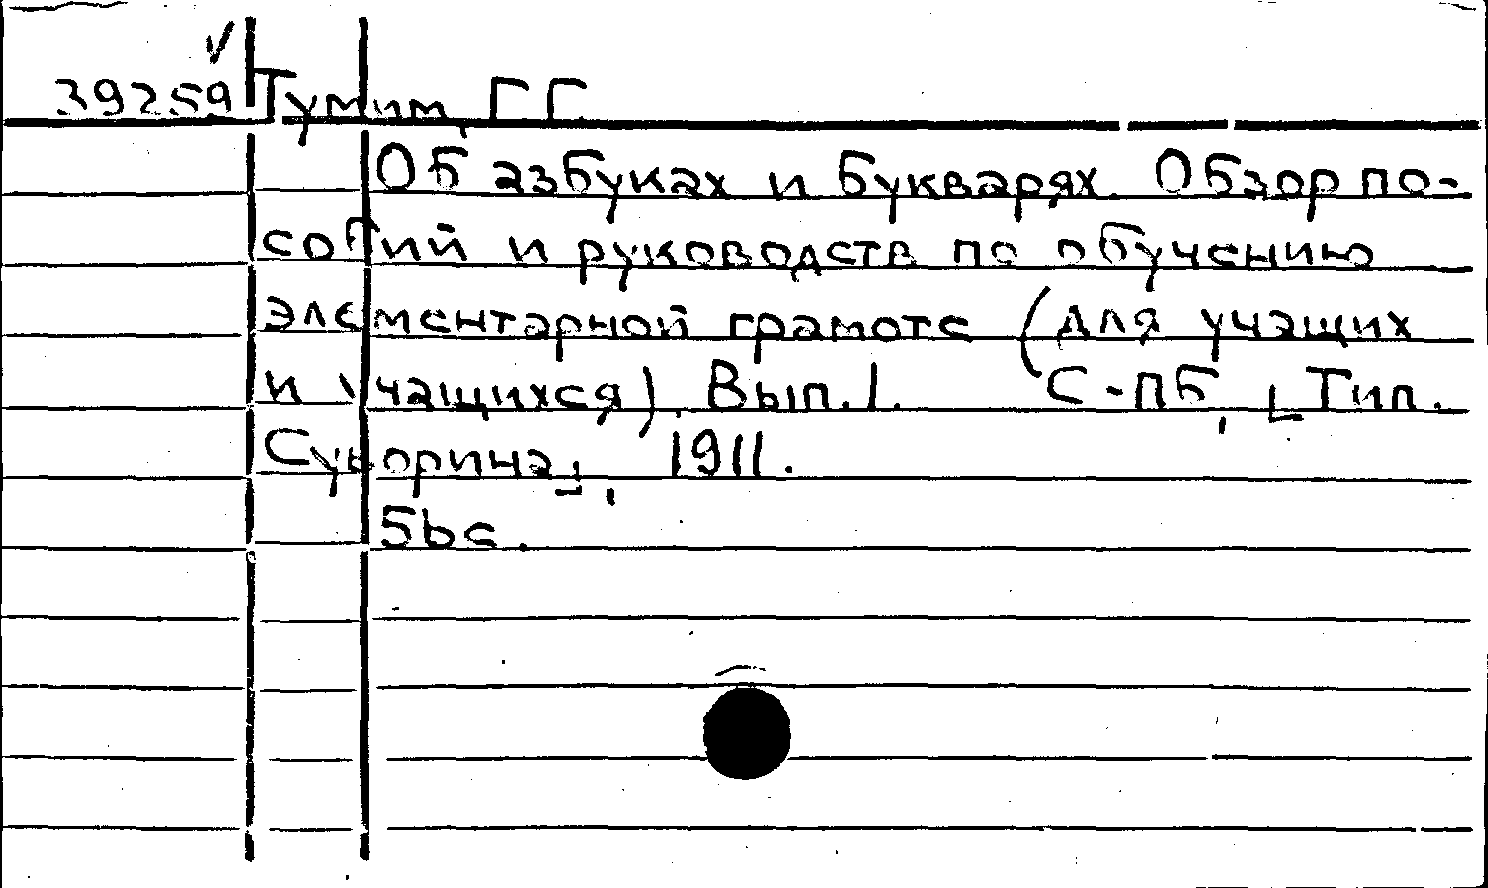 39259 Тумим, Г.Г.
Об азбуках и букварях. Обзор по-
собий и руководств по обучению
элементарной грамоте (для учащих
и учащихся). Вып. 1. С-ПБ, [Тип.
Суворина], 1911.
5bc.